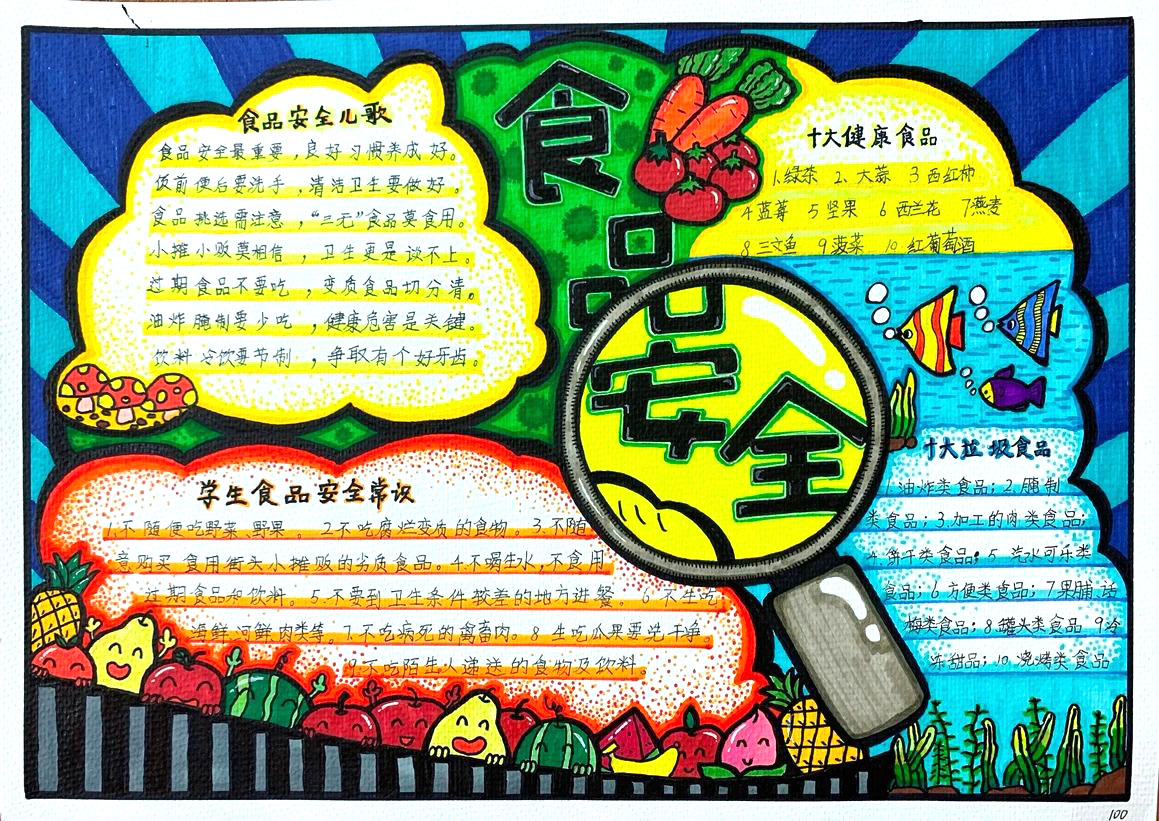 食品安全
食品安全儿歌
食品安全最重要，良好习惯养成好。
饭前便后要洗手，清洁卫生要做好。
食品挑选需注意，“三无”食品莫食用。
小摊小贩莫相信，卫生更是谈不上。
过期食品不要吃，变质食品切分清。
油炸腌制要少吃，健康危害是关键。
饮料冷饮要节制，争取有个好牙齿。
十大健康食品
1.绿茶 2、大蒜 3西红柿
4蓝莓 5坚果 6西兰花 7燕麦
8三文鱼 9菠菜 10、红葡萄酒
学生食品安全常识
1.不随便吃野菜、野果。2不吃腐烂变质的食物。3不随
意购买食用街头小摊贩的劣质食品。4.不喝生水，不食用
过期食品和饮料。5.不要到卫生条件较差的地方进餐。6不生吃
海鲜河鲜肉类等。7.不吃病死的禽畜肉。8生吃瓜果要洗干净。
9.不吃陌生人递送的食物及饮料。
十大垃圾食品
1油炸类食品；2.腌制
类食品；3.加工的肉类食品；
4.饼干类食品；5汽水可乐类
食品；6方便类食品；7果脯话
梅类食品；8罐头类食品9冷
冻甜品；10烧烤类食品
100